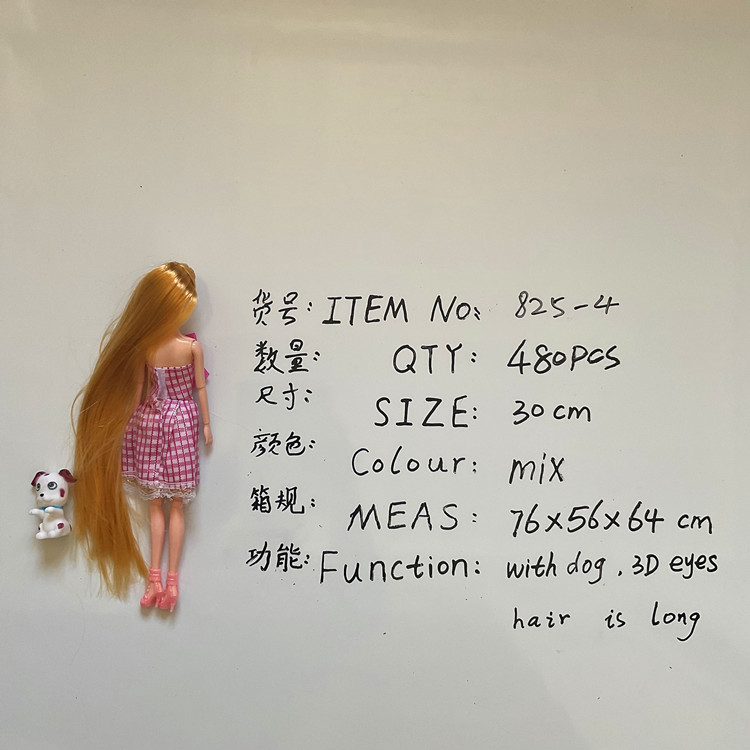 货号: ITEM No: 825-4
数量: QTY: 480PCS
尺寸: SIZE: 30cm
颜色: Colour: mix
箱规: MEAS: 76×56×64 cm
功能: Function: with dog, 3D eyes
hair is long